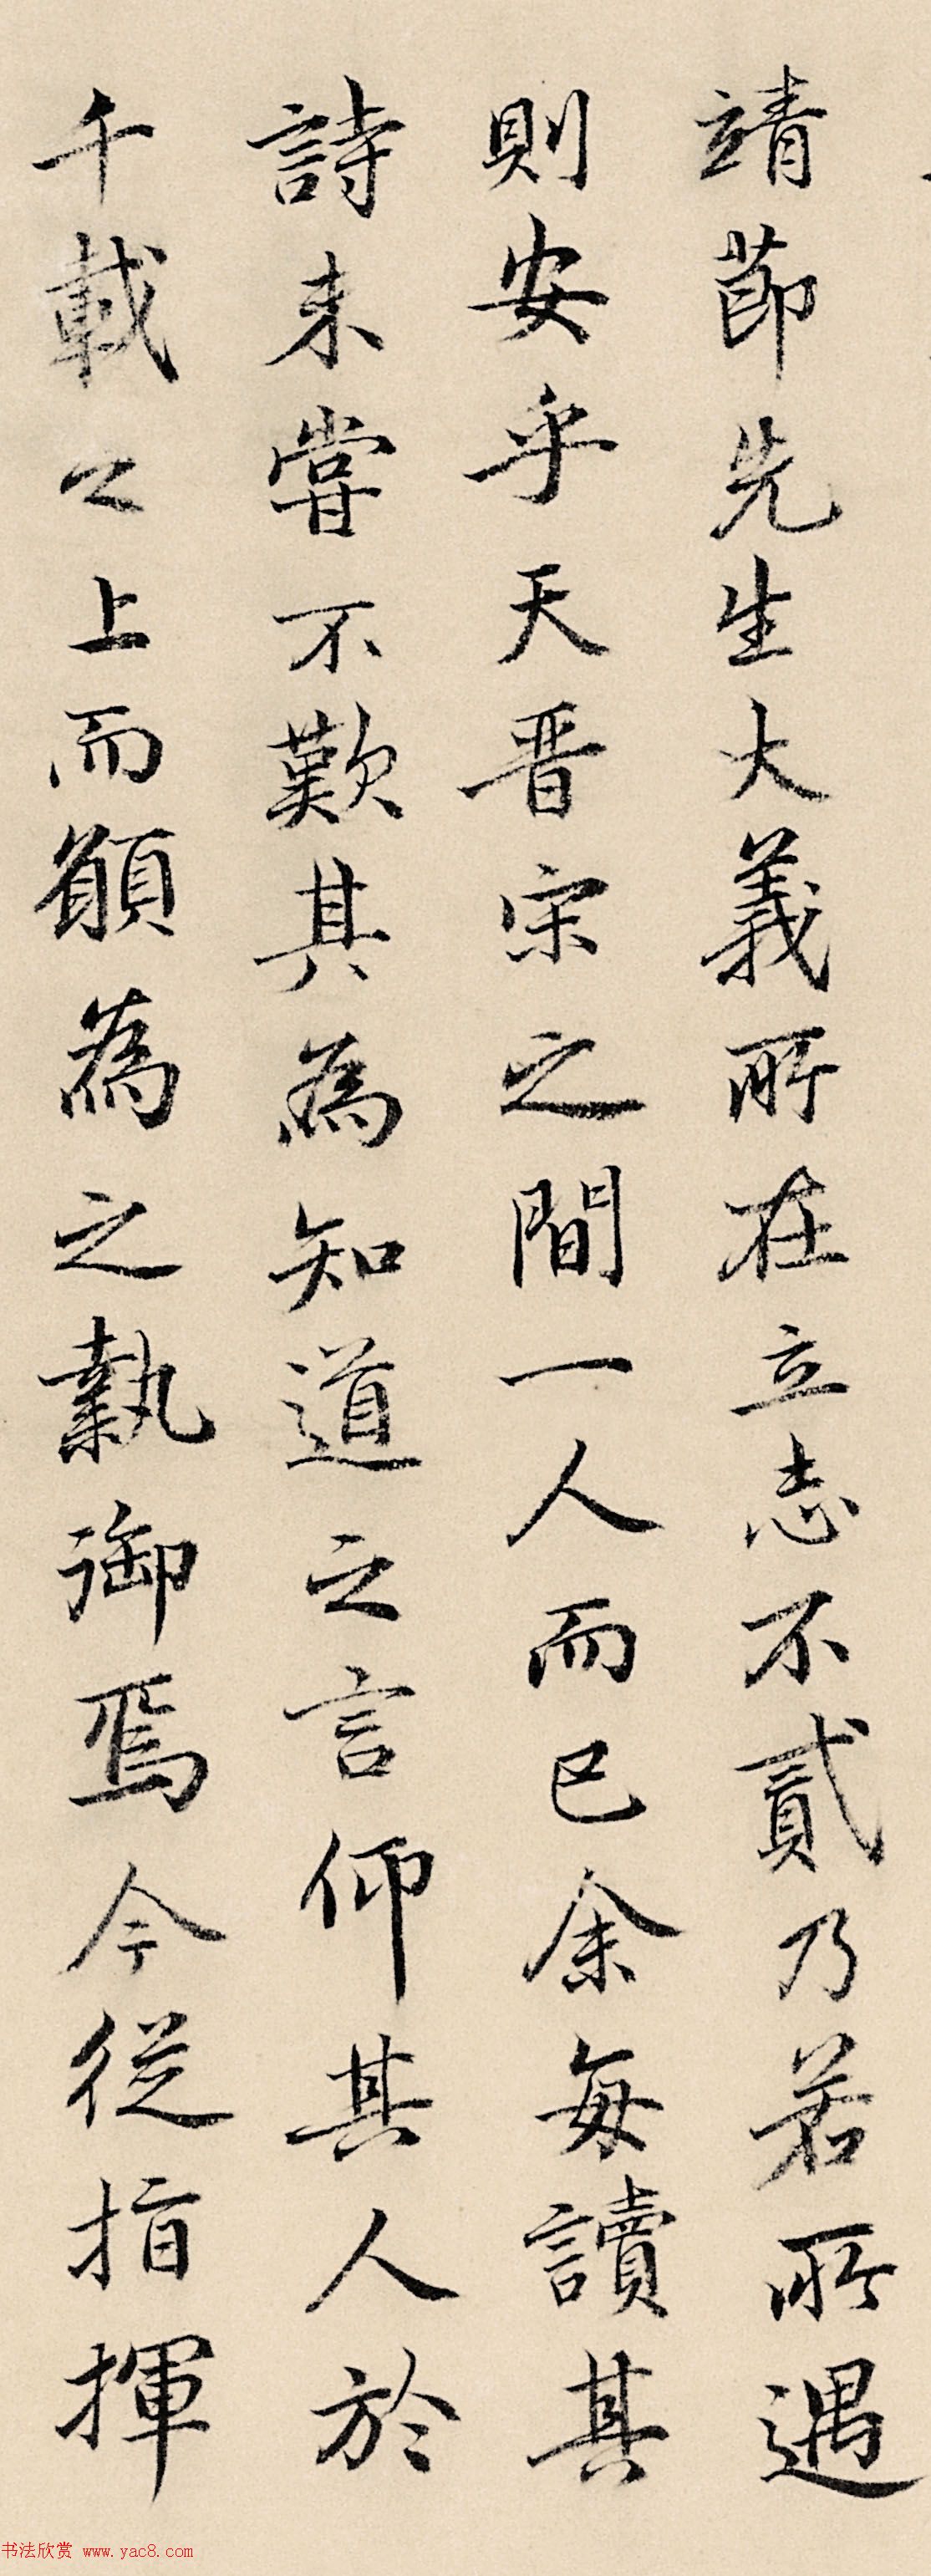 靖節先生大義所在立志不貳乃若所遇
則安乎天晋宋之間一人而已余每讀其
詩未嘗不歎其為知道之言仰其人於
千載之上而願為之執御焉今從指揮
书法欣赏 www.yac8.com